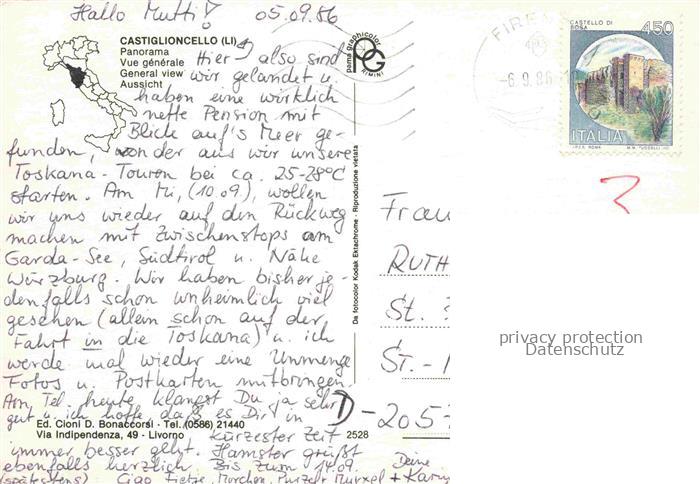 Hallo Mutti! 05.09.86
CASTIGLIONCELLO (LI)
Panorama
Vue générale
General view
Aussicht
Hier also sind
wir gelandet u.
haben eine wirklich
nette Pension mit
Blick auf's Meer ge-
funden, von der aus wir unsere
Toskana-Touren bei ca. 25-28°C
starten. Am Mi, (10.09), wollen
wir uns wieder auf den Rückweg
machen mit Zwischenstops am
Garda-See, Südtirol u. Nähe
Würzburg. Wir haben bisher je-
denfalls schon unheimlich viel
gesehen (allein schon auf der
Fahrt in die Toskana) u. ich
werde mal wieder eine Unmenge
Fotos u. Postkarten mitbringen.
Am Tel. heute klangst Du ja sehr
gut u. ich hoffe, daß es Dir in
Ed. Cioni D. Bonaccorsi - Tel. (0586) 21440
Via Indipendenza, 49 - Livorno
kürzester Zeit
immer besser geht. Hamster grüßt
ebenfalls herzlich Bis zum 14.09.
(spätestens) Ciao Deine
+ Karin
2528
pama graphicolor
PG
RIMINI
Da fotocolor Kodak Ektachrome - Riproduzione vietata
FIREN
-6.9.86
CASTELLO DI
450
ITALIA
I.P.Z.S. ROMA
Frau
RUTH
St.
ST.-
D-205
privacy protection
Datenschutz